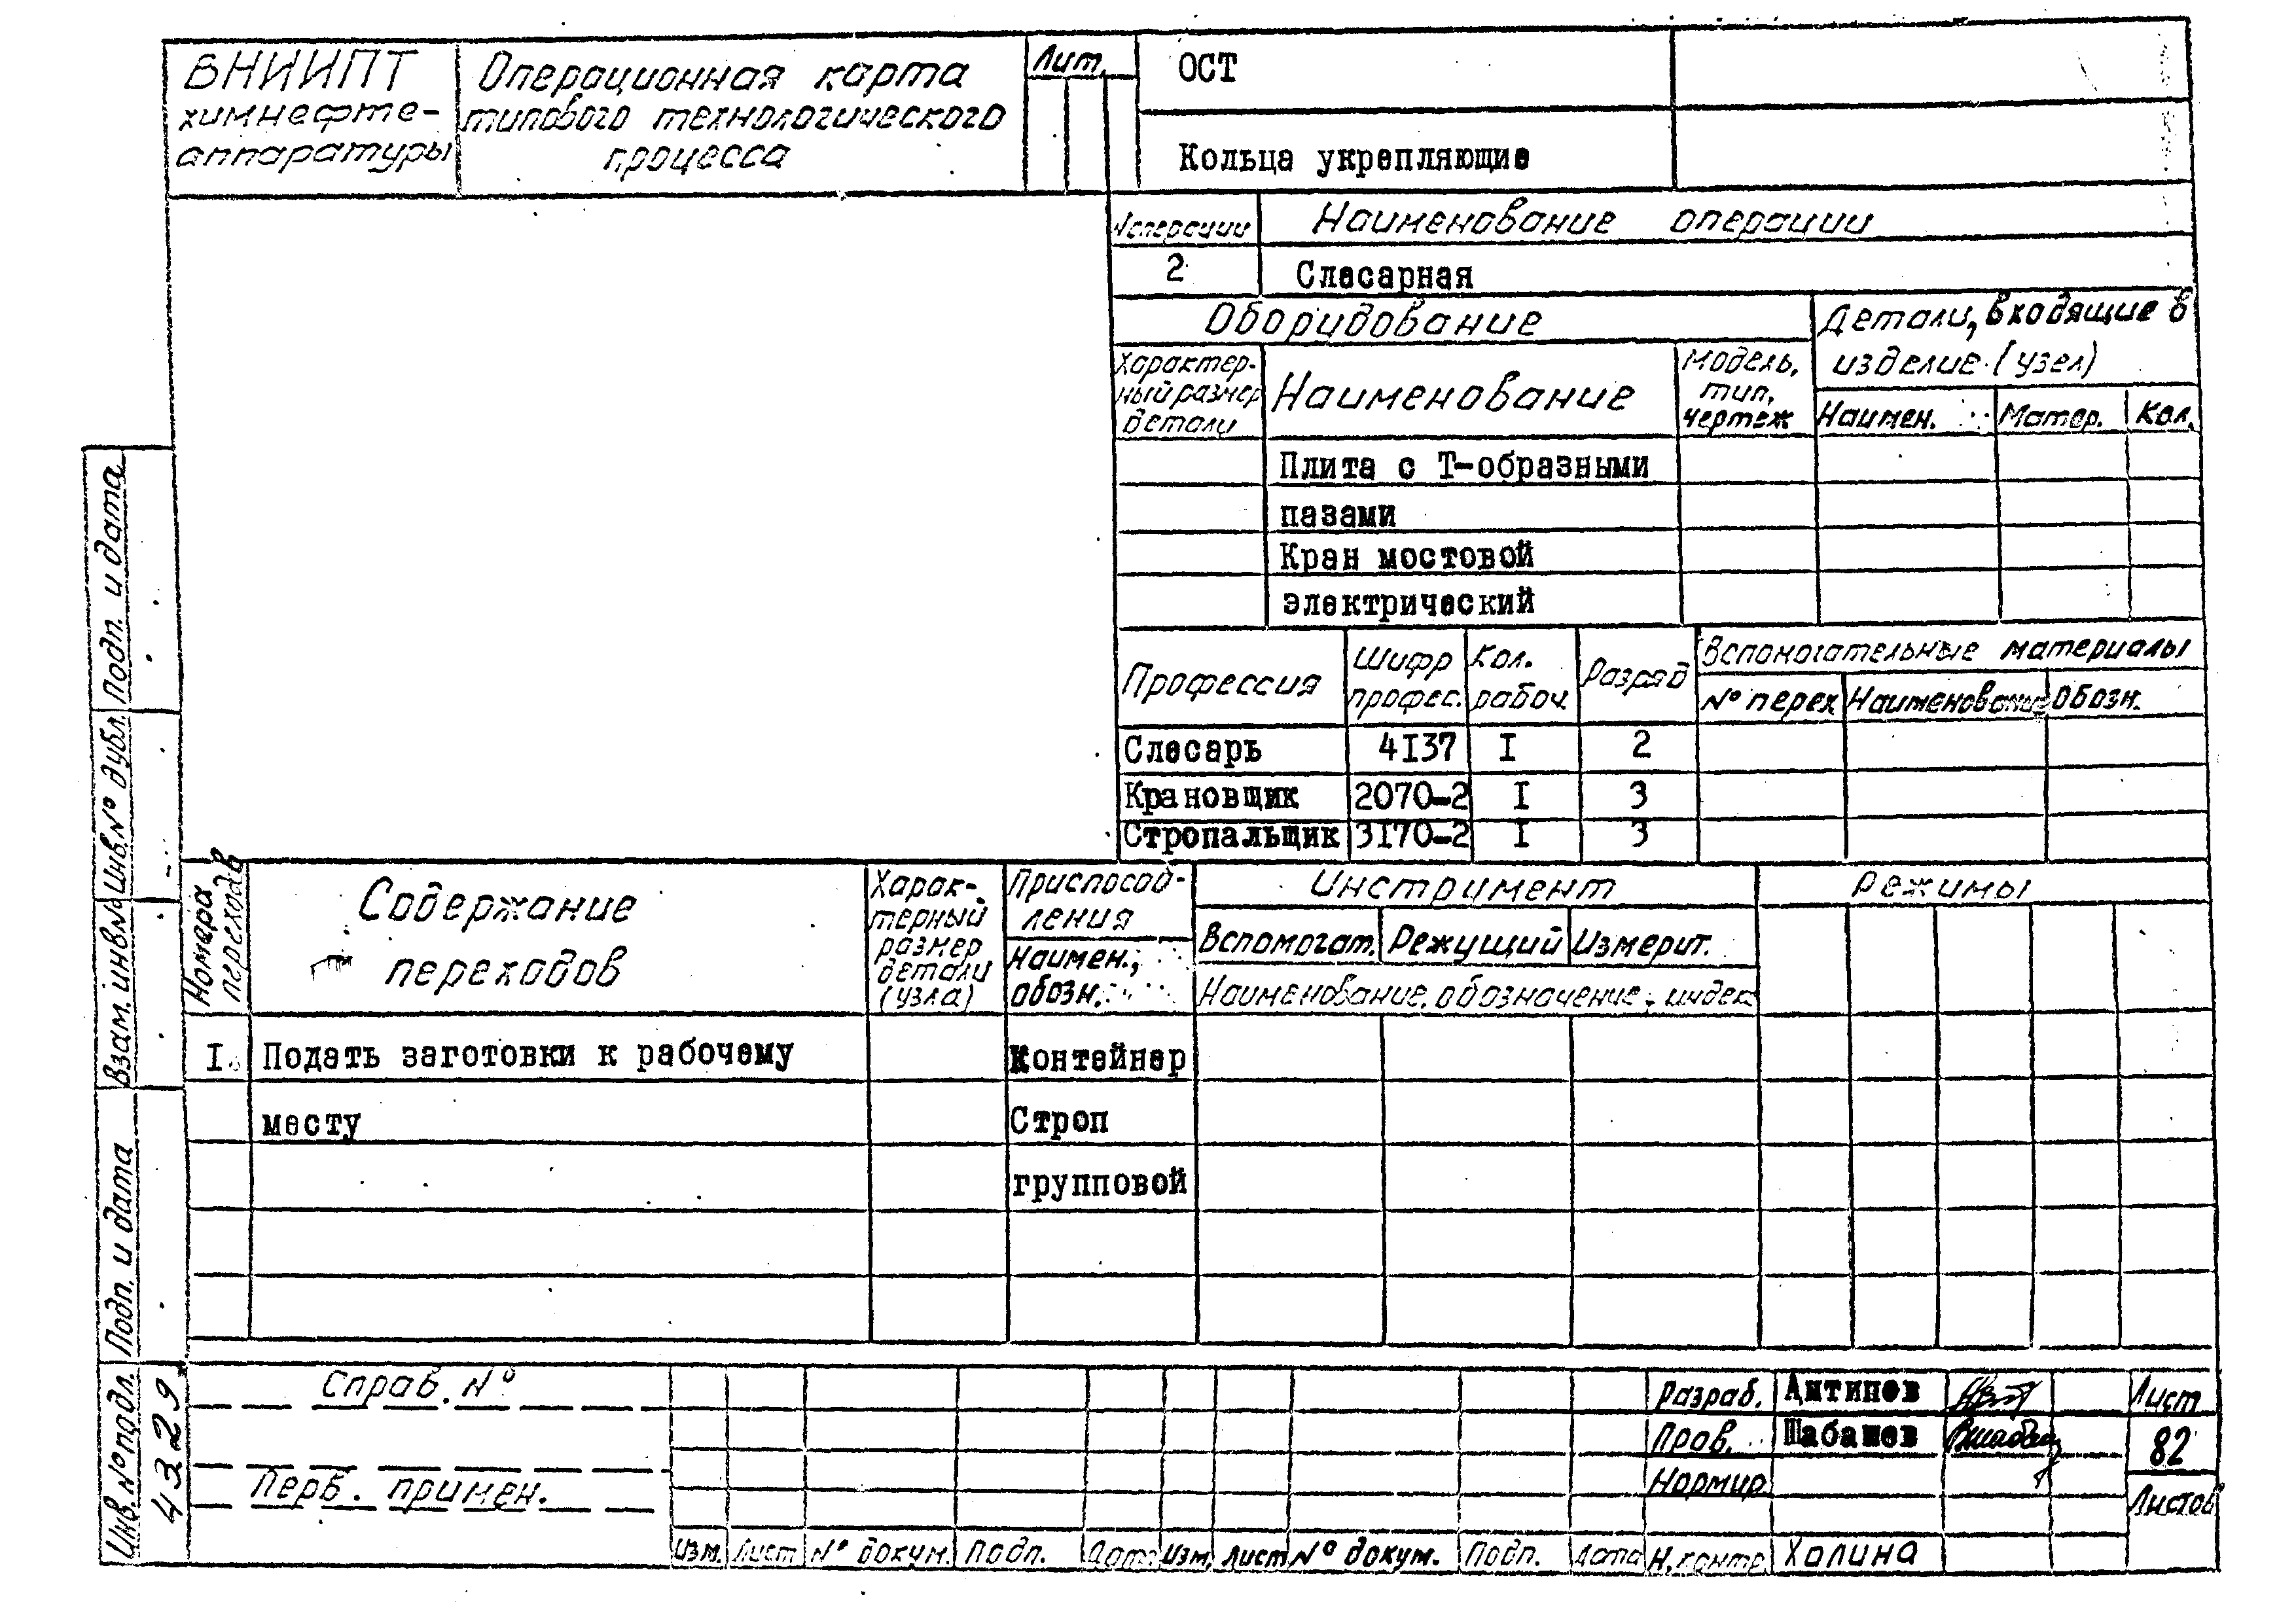 ВНИИПТ
химнефте-
аппаратуры
Операционная карта
типового технологического
процесса
Лит.
ОСТ
Кольца укрепляющие
№операции
Наименование операции
2
Слесарная
Оборудование
Детали, входящие в
изделие (узел)
Характер-
ный размер
детали
Наименование
Модель,
тип,
чертеж
Наимен.
Матер.
Кол.
Плита с Т-образными
пазами
Кран мостовой
электрический
Профессия
Шифр
профес.
Кол.
рабоч.
Разряд
Вспомогательные материалы
№ перех
Наименование
Обозн.
Слесарь 4I37 I 2
Крановщик 2070-2 I 3
Стропальщик 3I70-2 I 3
Номера
переходов
Содержание
переходов
Харак-
терный
размер
детали
(узла)
Приспособ-
ления
Наимен.,
обозн.
Инструмент
Вспомогат.
Режущий
Измерит.
Наименование, обозначение, индекс
Режимы
I. Подать заготовки к рабочему
месту
Контейнер
Строп
групповой
Подп. и дата
Инв.№ дубл.
Взам. инв.№
Подп. и дата
Инв.№ подл.
4329
Справ. №
Перв. примен.
Изм. Лист № докум. Подп. Дата Изм. Лист № докум. Подп. Дата
Разраб. Антипов
Пров. Шабашев
Нормир.
Н. контр. Халина
Лист
82
Листов